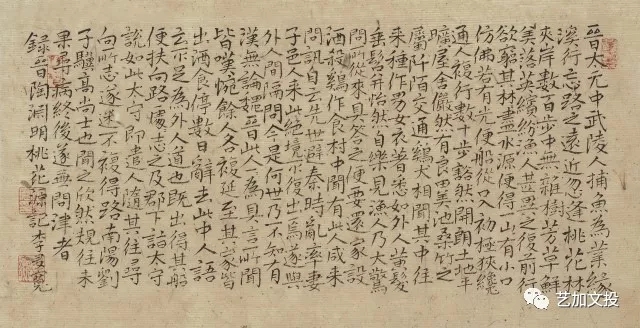 晉太元中武陵人捕魚為業緣
溪行忘路之遠近忽逢桃花林
夾岸數百步中無雜樹芳草鮮
美落英繽紛漁人甚異之復前行
欲窮其林盡水源便得一山有小口
仿佛若有光便船從口入初極狹纔
通人復行數十步豁然開朗土地平
曠屋舍儼然有良田美池桑竹之
屬阡陌交通雞犬相聞其中往
來種作男女衣著悉如外人黃髮
垂髫并怡然自樂見漁人乃大驚
問所從來具答之便要還家設
酒殺雞作食村中聞有此人咸來
問訊自云先世避秦時亂率妻
子邑人來此絕境不復出焉遂與
外人間隔問今是何世乃不知有
漢無論魏晉此人一為具言所聞
皆嘆惋餘人各複延至其家皆
出酒食停數日辭去此中人語
云不足為外人道也既出得其船
便扶向路處處志之及郡下詣太守
說如此太守即遣人隨其往尋
向所志遂迷不複得路南陽劉
子驥高尚士也聞之欣然規往未
果尋病終後遂無問津者
錄晉陶淵明桃花源記李
艺加文投